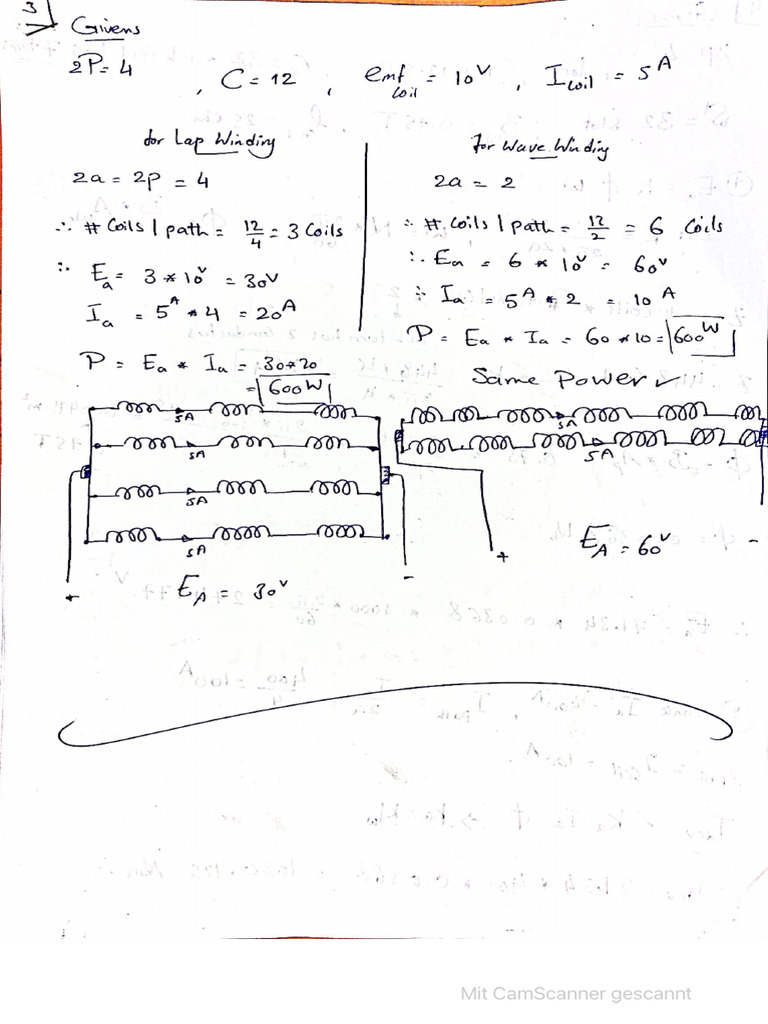 3
Givens
2P=4 , C=12 , emf coil = 10V , Icoil = 5A
for Lap Winding
2a = 2p = 4
∴ # Coils / path = 12/4 = 3 Coils
∴ Ea = 3 * 10V = 30V
Ia = 5A * 4 = 20A
P = Ea * Ia = 30*20
= 600W
5A
5A
5A
5A
+
-
EA = 30V
for Wave Winding
2a = 2
∴ # Coils / path = 12/2 = 6 Coils
∴ Ea = 6 * 10V = 60V
∴ Ia = 5A * 2 = 10A
P = Ea * Ia = 60*10 = 600W
Same Power ✓
5A
5A
+
-
EA = 60V
Mit CamScanner gescannt